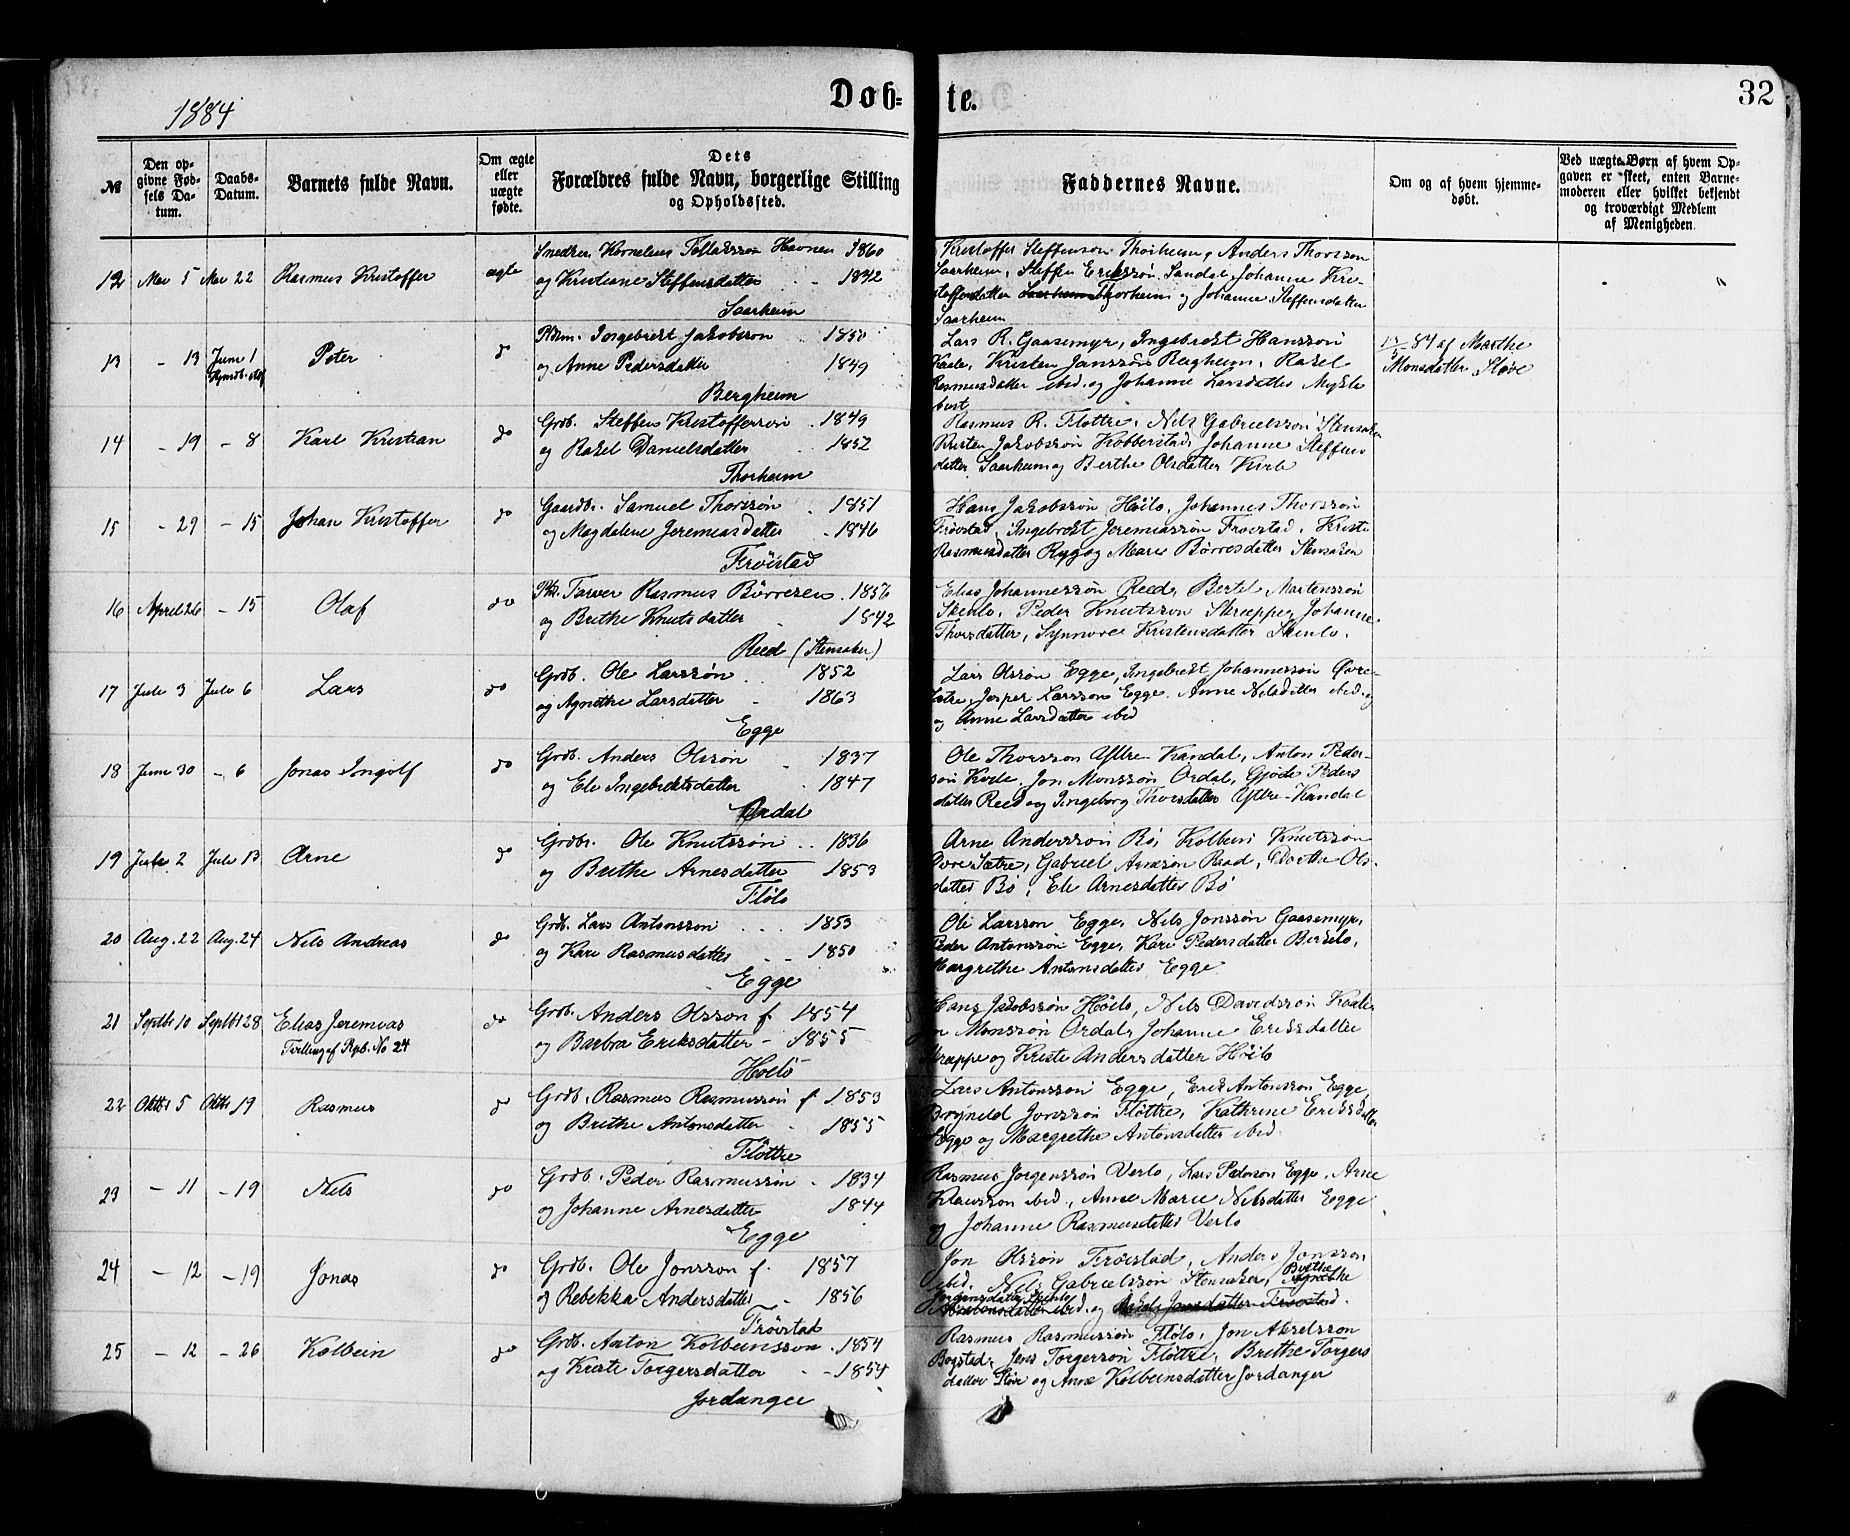 1884
Døb-
te.
32
№
Den op-
givne Fød-
sels Da-
tum.
Daabs-
Datum.
Barnets fulde Navn.
Om ægte
eller
uægte
fødte.
Dets
Forældres fulde Navn, borgerlige Stilling
og Opholdssted.
Faddernes Navne.
Om og af hvem hjemme-
døbt.
Ved uægte Børn af hvem Op-
gaven er skeet, enten Barne-
moderen eller hvilket bekjendt
og troværdigt Medlem
af Menigheden.
12 Mai 5 Mai 22 Rasmus Kristoffer ægte
Snedker Kornelius Tollakssøn Havnen 1860
og Kristiane Steffensdatter 1842
Saarheim
Kristoffer Steffenson Thorheim, Anders Thorsson
Saarheim, Steffen Erikssøn Sandal, Johanne Kri-
stoffersdatter Saarheim Thorheim og Johanne Steffensdatter
Saarheim
13 - 13 Juni 1 Peter do
Ingebrekt Jakobsson 1850
og Anne Pedersdatter 1849
Bergheim
Lars R. Gaasemyr, Ingebrekt Hanssøn
Kaale, Kristen Janssøn Bergheim, Rakel
Rasmusdatter ibed. og Johanne Larsdatter Mykle
bust
84 af Marthe
Monsdatter Støve
14 - 19 - 8 Karl Kristian do
Grdb. Steffen Kristofferssøn 1849
og Rakel Danielsdatter 1852
Thorheim
Rasmus R. Flottre, Nils Gabrielssøn Stensaker
Kristen Jakobssøn Kobberstad, Johanne Steffens
datter Saarheim og Berthe Olsdatter Kvile
15 - 29 - 15 Johan Kristoffer do
Gaardb. Samuel Thorssøn 1851
og Magdalene Jeremiasdatter 1846
Frøistad
Hans Jakobssøn Høilo, Johannes Thorssøn
Frøistad, Ingebrekt Jeremiassøn Frøistad, Kristi
Rasmusdatter Ryg og Marie Børresdatter Stensaker
16 April 26 - 15 Olaf do
Farver Rasmus Børresen 1856
og Brithe Knutsdatter 1842
Reed (Stensaker)
Elias Johannessøn Reed, Bertel Martenssøn
Skenlo, Peder Knutsson Skræppe, Johanne
Thorsdatter, Synnove Kristensdatter Skenlo.
17 Juli 3 Juli 6 Lars do
Grdb. Ole Larssøn 1852
og Agnethe Larsdatter 1863
Egge
Lars Olssøn Egge, Ingebrekt Johannessøn Øvre-
Sætre, Jesper Larsson Egge, Anne Nilsdatter ibed. og
og Anne Larsdatter ibed
18 Juni 30 - 6 Jonas Ingolf do
Grdb. Anders Olsson 1837
og Eli Ingebrektsdatter 1847
Ordal
Ole Thorsson Yttre-Kandal, Anton Peder-
søn Kvile, Jon Monssøn Ordal, Gjøde Peders
datter Reed og Ingeborg Thorsdatter Yttre-Kandal
19 Juli 2 Juli 13 Arne do
Grdb. Ole Knutssøn 1836
og Brithe Arnesdatter 1853
Fløtø
Arne Andersson Bø, Kolbein Knutsson
Øvre Sætre, Gabriel Arneson Raad, Dorthe Ols-
datter Bø, Eli Arnesdatter Bø
20 Aug. 22 Aug. 24 Nils Andreas do
Grdb. Lars Antonsson 1853
og Kari Rasmusdatter 1850
Egge
Ole Larsson Egge, Nils Jonssøn Gaasemyr,
Peder Antonssøn Egge, Kari Pedersdatter Birkelo,
Margrethe Antonsdatter Egge
21 Septbr 10 Septbr 28 Elias Jeremias do
Tvilling af Rgb. No 24
Grdb. Anders Olsson f. 1854
og Barbra Eriksdatter - 1855
Høilo
Hans Jakobssøn Høilo, Nils Davidssøn Kaale
Monssøn Ordal, Johanne Eriksdatter
Skræppe og Kristi Andersdatter Høilo
22 Oktbr 5 Oktbr 19 Rasmus do
Grdb. Rasmus Rasmussøn f. 1853
og Brithe Antonsdatter 1855
Fløttre
Lars Antonssøn Egge, Erik Antonsson Egge,
Brynild Jonssøn Fløttre, Kathrine Eriksdatter
Egge og Margrethe Antonsdatter ibed.
23 - 11 - 19 Nils do
Grdb. Peder Rasmussøn 1834
og Johanne Arnesdatter 1844
Egge
Rasmus Jorgenssøn Verlo, Lars Pederson Egge, Arne
Klausson ibed., Anne Marie Nilsdatter Egge
og Johanne Rasmusdatter Verlo
24 - 12 - 19 Jonas do
Grdb. Ole Jonsson f. 1857
og Rebekka Andersdatter 1856
Frøistad
Jon Olssøn Frøistad, Anders Jonsson
ibed. Nils Gabrielssøn Stensaker, Brithe Agnethe
Jorgensdatter Skenlo ibed. og Jonsdatter Frøistad.
25 - 12 - 26 Kolbein do
Grdb. Anton Kolbeinsson 1854
og Kristi Torgersdatter - 1854
Jordanger
Rasmus Rasmussøn Fløto, Jon Akselsson
Bogstad, Jens Torgerssøn Fløttre, Brithe Torgers
datter Støve og Anne Kolbeinsdatter Jordanger